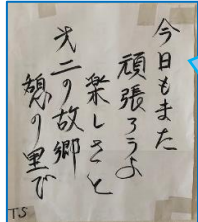 今日もまた
頑張ろうよ
楽しさと
才二の故郷
憩の里で
TS